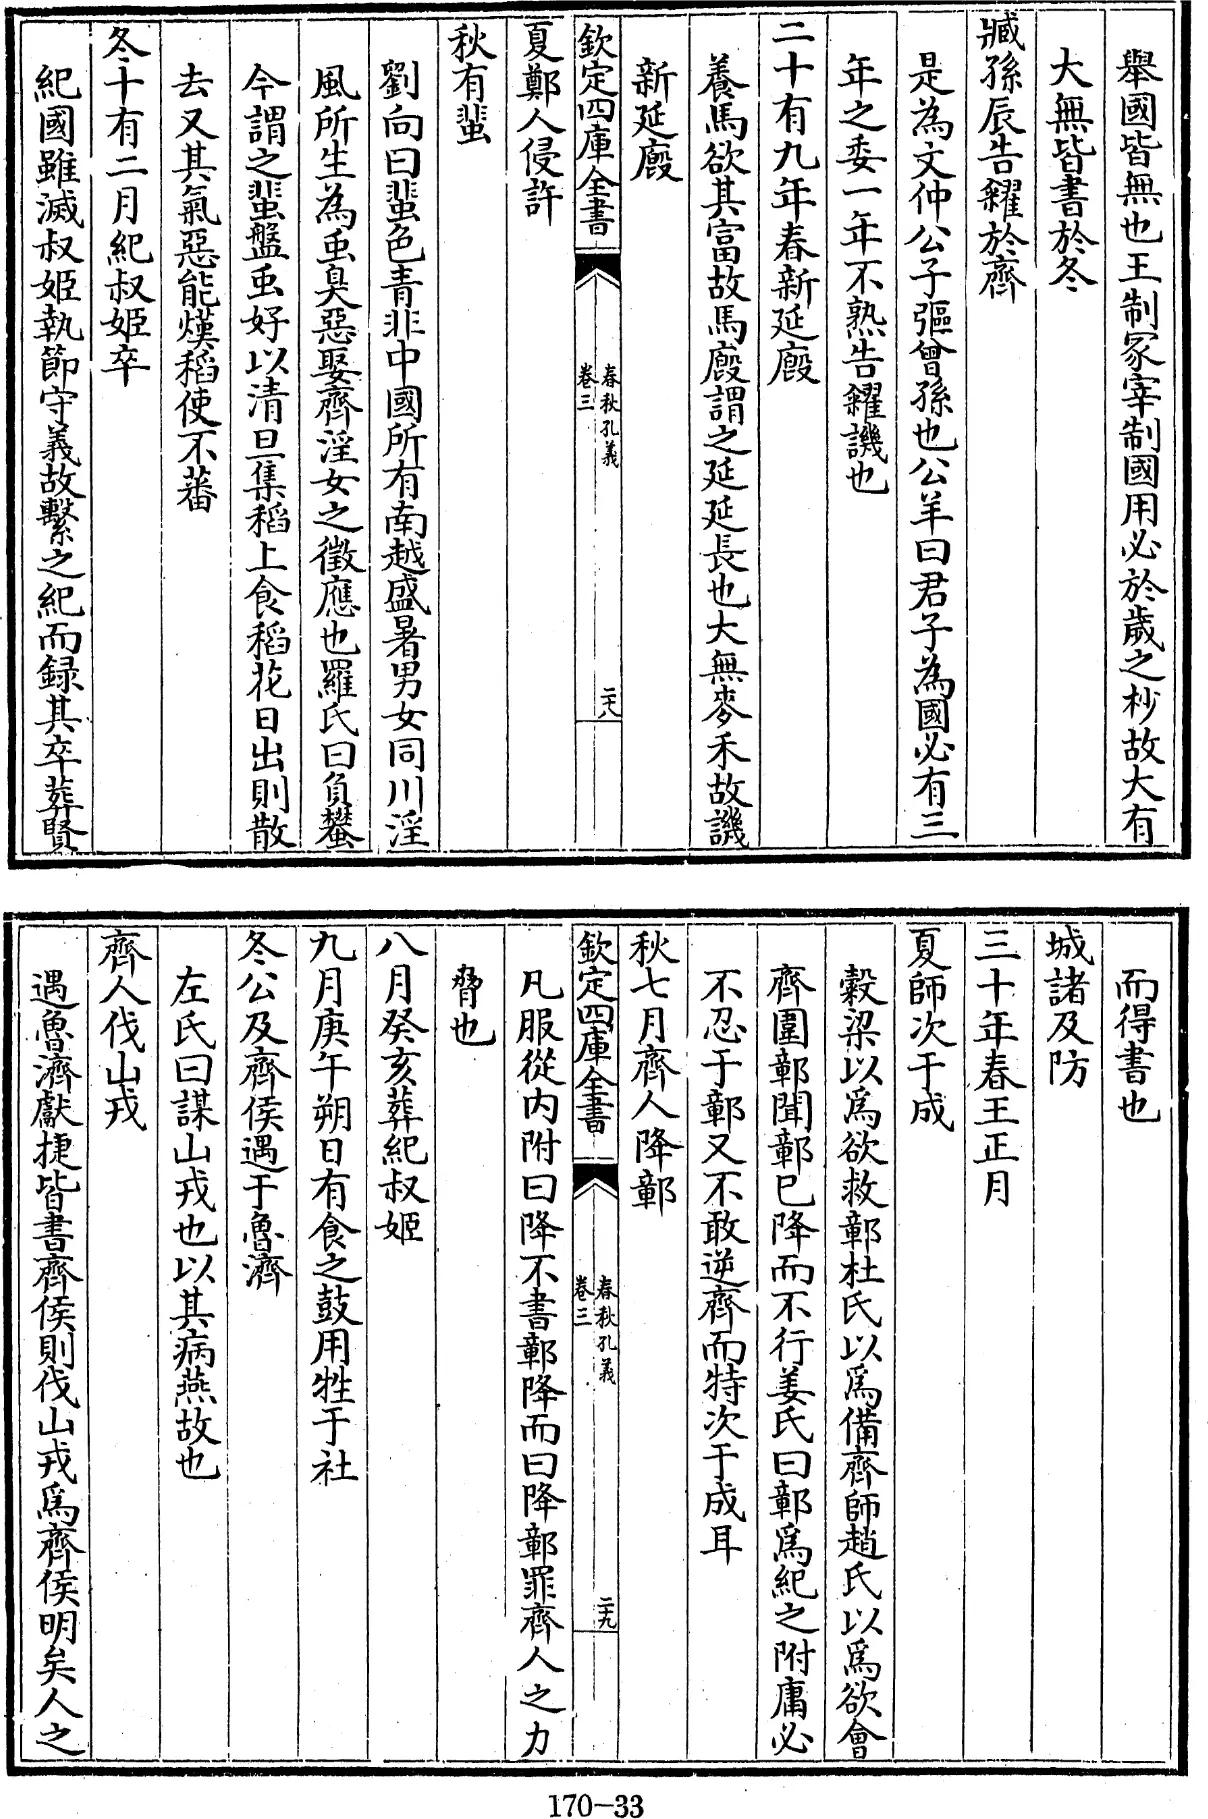 舉國皆無也王制冢宰制國用必於歲之杪故大有
大無皆書於冬
臧孫辰告糴於齊
是為文仲公子彄曾孫也公羊曰君子為國必有三
年之委一年不熟告糴譏也
二十有九年春新延廄
養馬欲其富故馬廄謂之延延長也大無麥禾故譏
新延廄
欽定四庫全書
春秋孔義
卷三
二十八
夏鄭人侵許
秋有蜚
劉向曰蜚色青非中國所有南越盛暑男女同川淫
風所生為䖝臭惡娶齊淫女之徵應也羅氏曰負蠜
今謂之蜚盤䖝好以清旦集稻上食稻花日出則散
去又其氣惡能熯稻使不蕃
冬十有二月紀叔姬卒
紀國雖滅叔姬執節守義故繫之紀而録其卒葬賢
而得書也
城諸及防
三十年春王正月
夏師次于成
榖梁以為欲救鄣杜氏以爲備齊師趙氏以爲欲會
齊圍鄣聞鄣已降而不行姜氏曰鄣爲紀之附庸必
不忍于鄣又不敢逆齊而特次于成耳
秋七月齊人降鄣
欽定四庫全書
春秋孔義
卷三
二十九
凡服從内附曰降不書鄣降而曰降鄣罪齊人之力
脅也
八月癸亥葬紀叔姬
九月庚午朔日有食之鼓用牲于社
冬公及齊侯遇于魯濟
左氏曰謀山戎也以其病燕故也
齊人伐山戎
遇魯濟獻捷皆書齊侯則伐山戎爲齊侯明矣人之
170-33